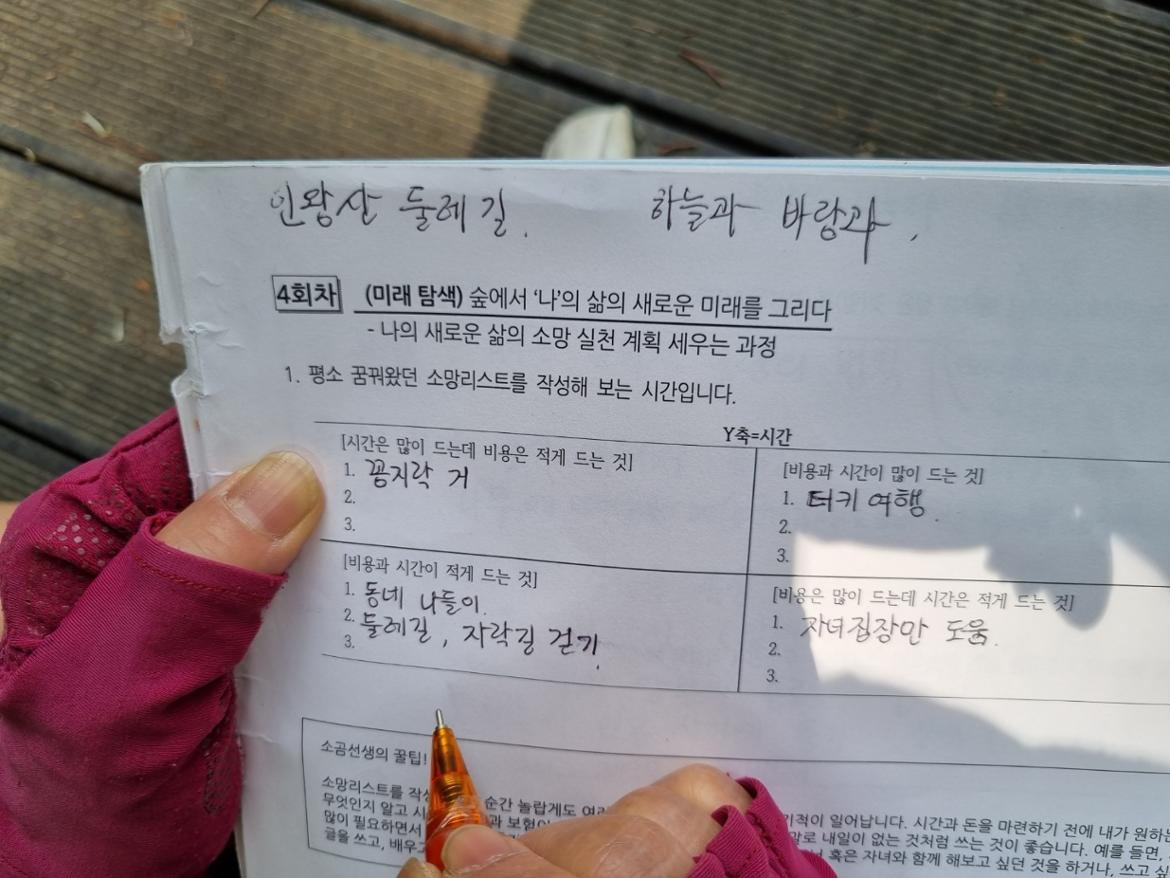 인왕산 둘레길. 하늘과 바람과,
4회차 (미래 탐색) 숲에서 '나'의 삶의 새로운 미래를 그리다
- 나의 새로운 삶의 소망 실천 계획 세우는 과정
1. 평소 꿈꿔왔던 소망리스트를 작성해 보는 시간입니다.
Y축=시간
[시간은 많이 드는데 비용은 적게 드는 것]
1. 꼼지락 거
2.
3.
[비용과 시간이 많이 드는 것]
1. 터키 여행.
2.
3.
[비용과 시간이 적게 드는 것]
1. 동네 나들이.
2. 둘레길, 자락길 걷기.
3.
[비용은 많이 드는데 시간은 적게 드는 것]
1. 자녀집장만 도움.
2.
3.
소곰선생의 꿀팁!
소망리스트를 순간 놀랍게도 기적이 일어납니다. 시간과 돈을 마련하기 전에 내가
무엇인지 알고 내일이 없는 것처럼 쓰는 것이 좋습니다. 예를 들면,
많이 필요하면서 혹은 자녀와 함께 해보고 싶던 것을 하거나, 쓰고
글을 쓰고,